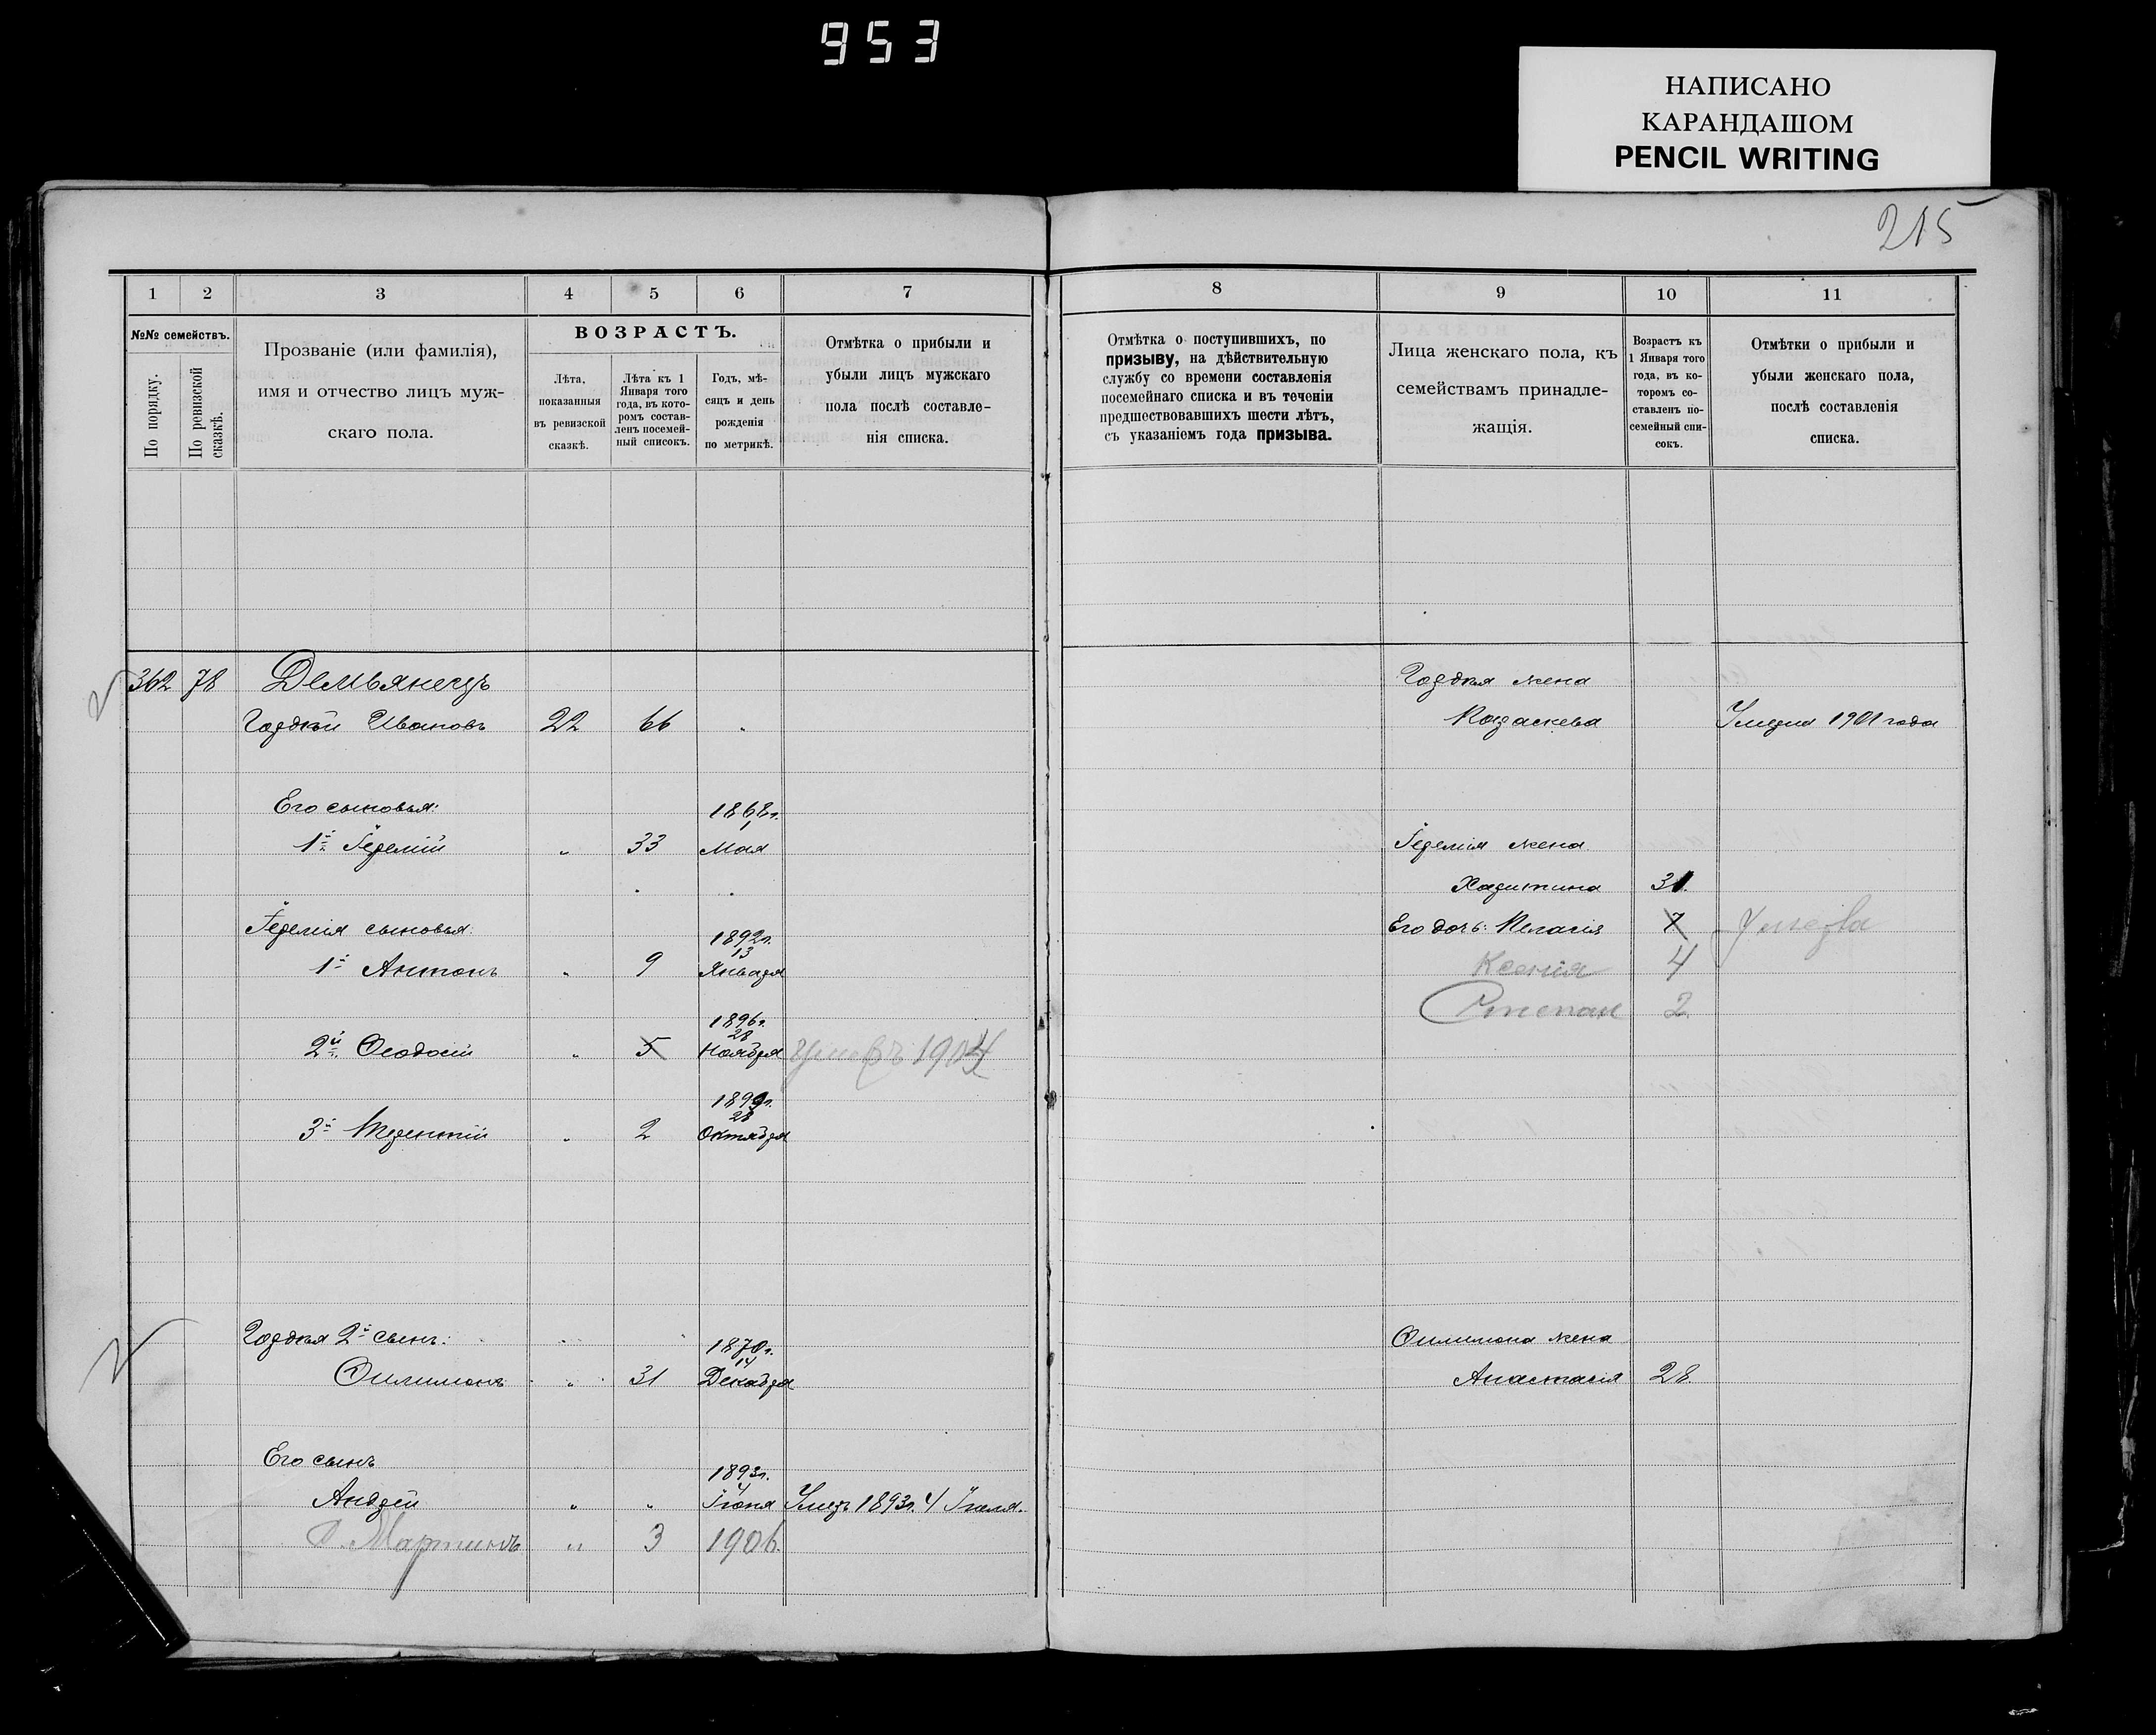 953
НАПИСАНО
КАРАНДАШОМ
PENCIL WRITING
215
1 2 3 4 5 6 7
№№ семействъ.
По порядку.
По ревизской сказкѣ.
Прозваніе (или фамилія),
имя и отчество лицъ муж-
скаго пола.
ВОЗРАСТЪ.
Лѣта,
показанныя
въ ревизской
сказкѣ.
Лѣта къ 1
Января того
года, въ кото-
ромъ состав-
ленъ посемей-
ный списокъ.
Годъ, мѣ-
сяцъ и день
рожденія
по метрикѣ.
Отмѣтка о прибыли и
убыли лицъ мужскаго
пола послѣ составле-
нія списка.
362 78 Демьянецъ
Гордѣй Ивановъ 22 66 "
Его сыновья: 1868г.
1й Іеремій " 33 Мая
Іеремія сыновья 1892г.
13
1й Антонъ " 9 Января
1896г.
28
2й Ѳеодосій " 5 Ноября Умеръ 1904
1899г.
28
3й Терентій " 2 Октября
Гордѣя 2й сынъ: 1870г.
14
Филимонъ " 31 Декабря
Его сынъ 1893г.
4
Андрей " " Іюня Умеръ 1893г. 4 Іюля.
Мартинъ " 3 1906.
8 9 10 11
Отмѣтка о поступившихъ, по
призыву, на дѣйствительную
службу со времени составленія
посемейнаго списка и въ теченіи
предшествовавшихъ шести лѣтъ,
съ указаніемъ года призыва.
Лица женскаго пола, къ
семействамъ принадле-
жащія.
Возрастъ къ
1 Января того
года, въ ко-
торомъ со-
ставленъ по-
семейный спи-
сокъ.
Отмѣтки о прибыли и
убыли женскаго пола,
послѣ составленія
списка.
Гордѣя жена
Параскева Умерла 1901 года
Іеремія жена
Харитина 31.
Его дочь: Пелагія 7 Умерла
Ксенія 4
Степан 2
Филимона жена
Анастасія 28.